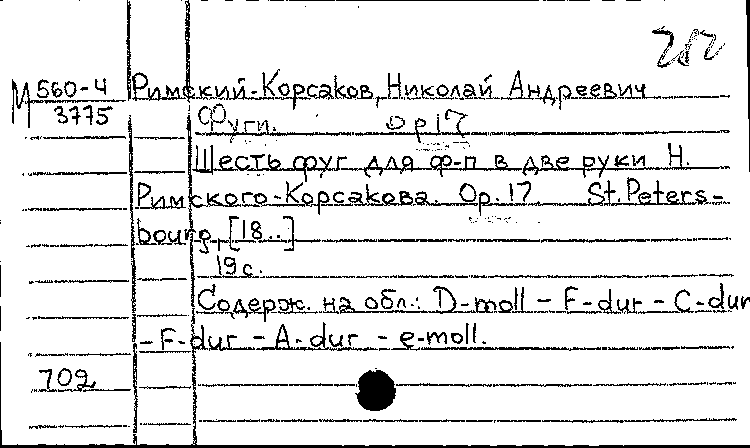 282
М 560-4 Римский-Корсаков, Николай Андреевич
3775 Фуги. Ор 17
Шесть фуг для ф-п в две руки Н.
Римского-Корсакова. Op. 17 St. Peters-
bourg, [18..]
19 с.
Содерж. на обл.: D-moll - F-dur - C-dur
- F-dur - A-dur - e-moll.
702